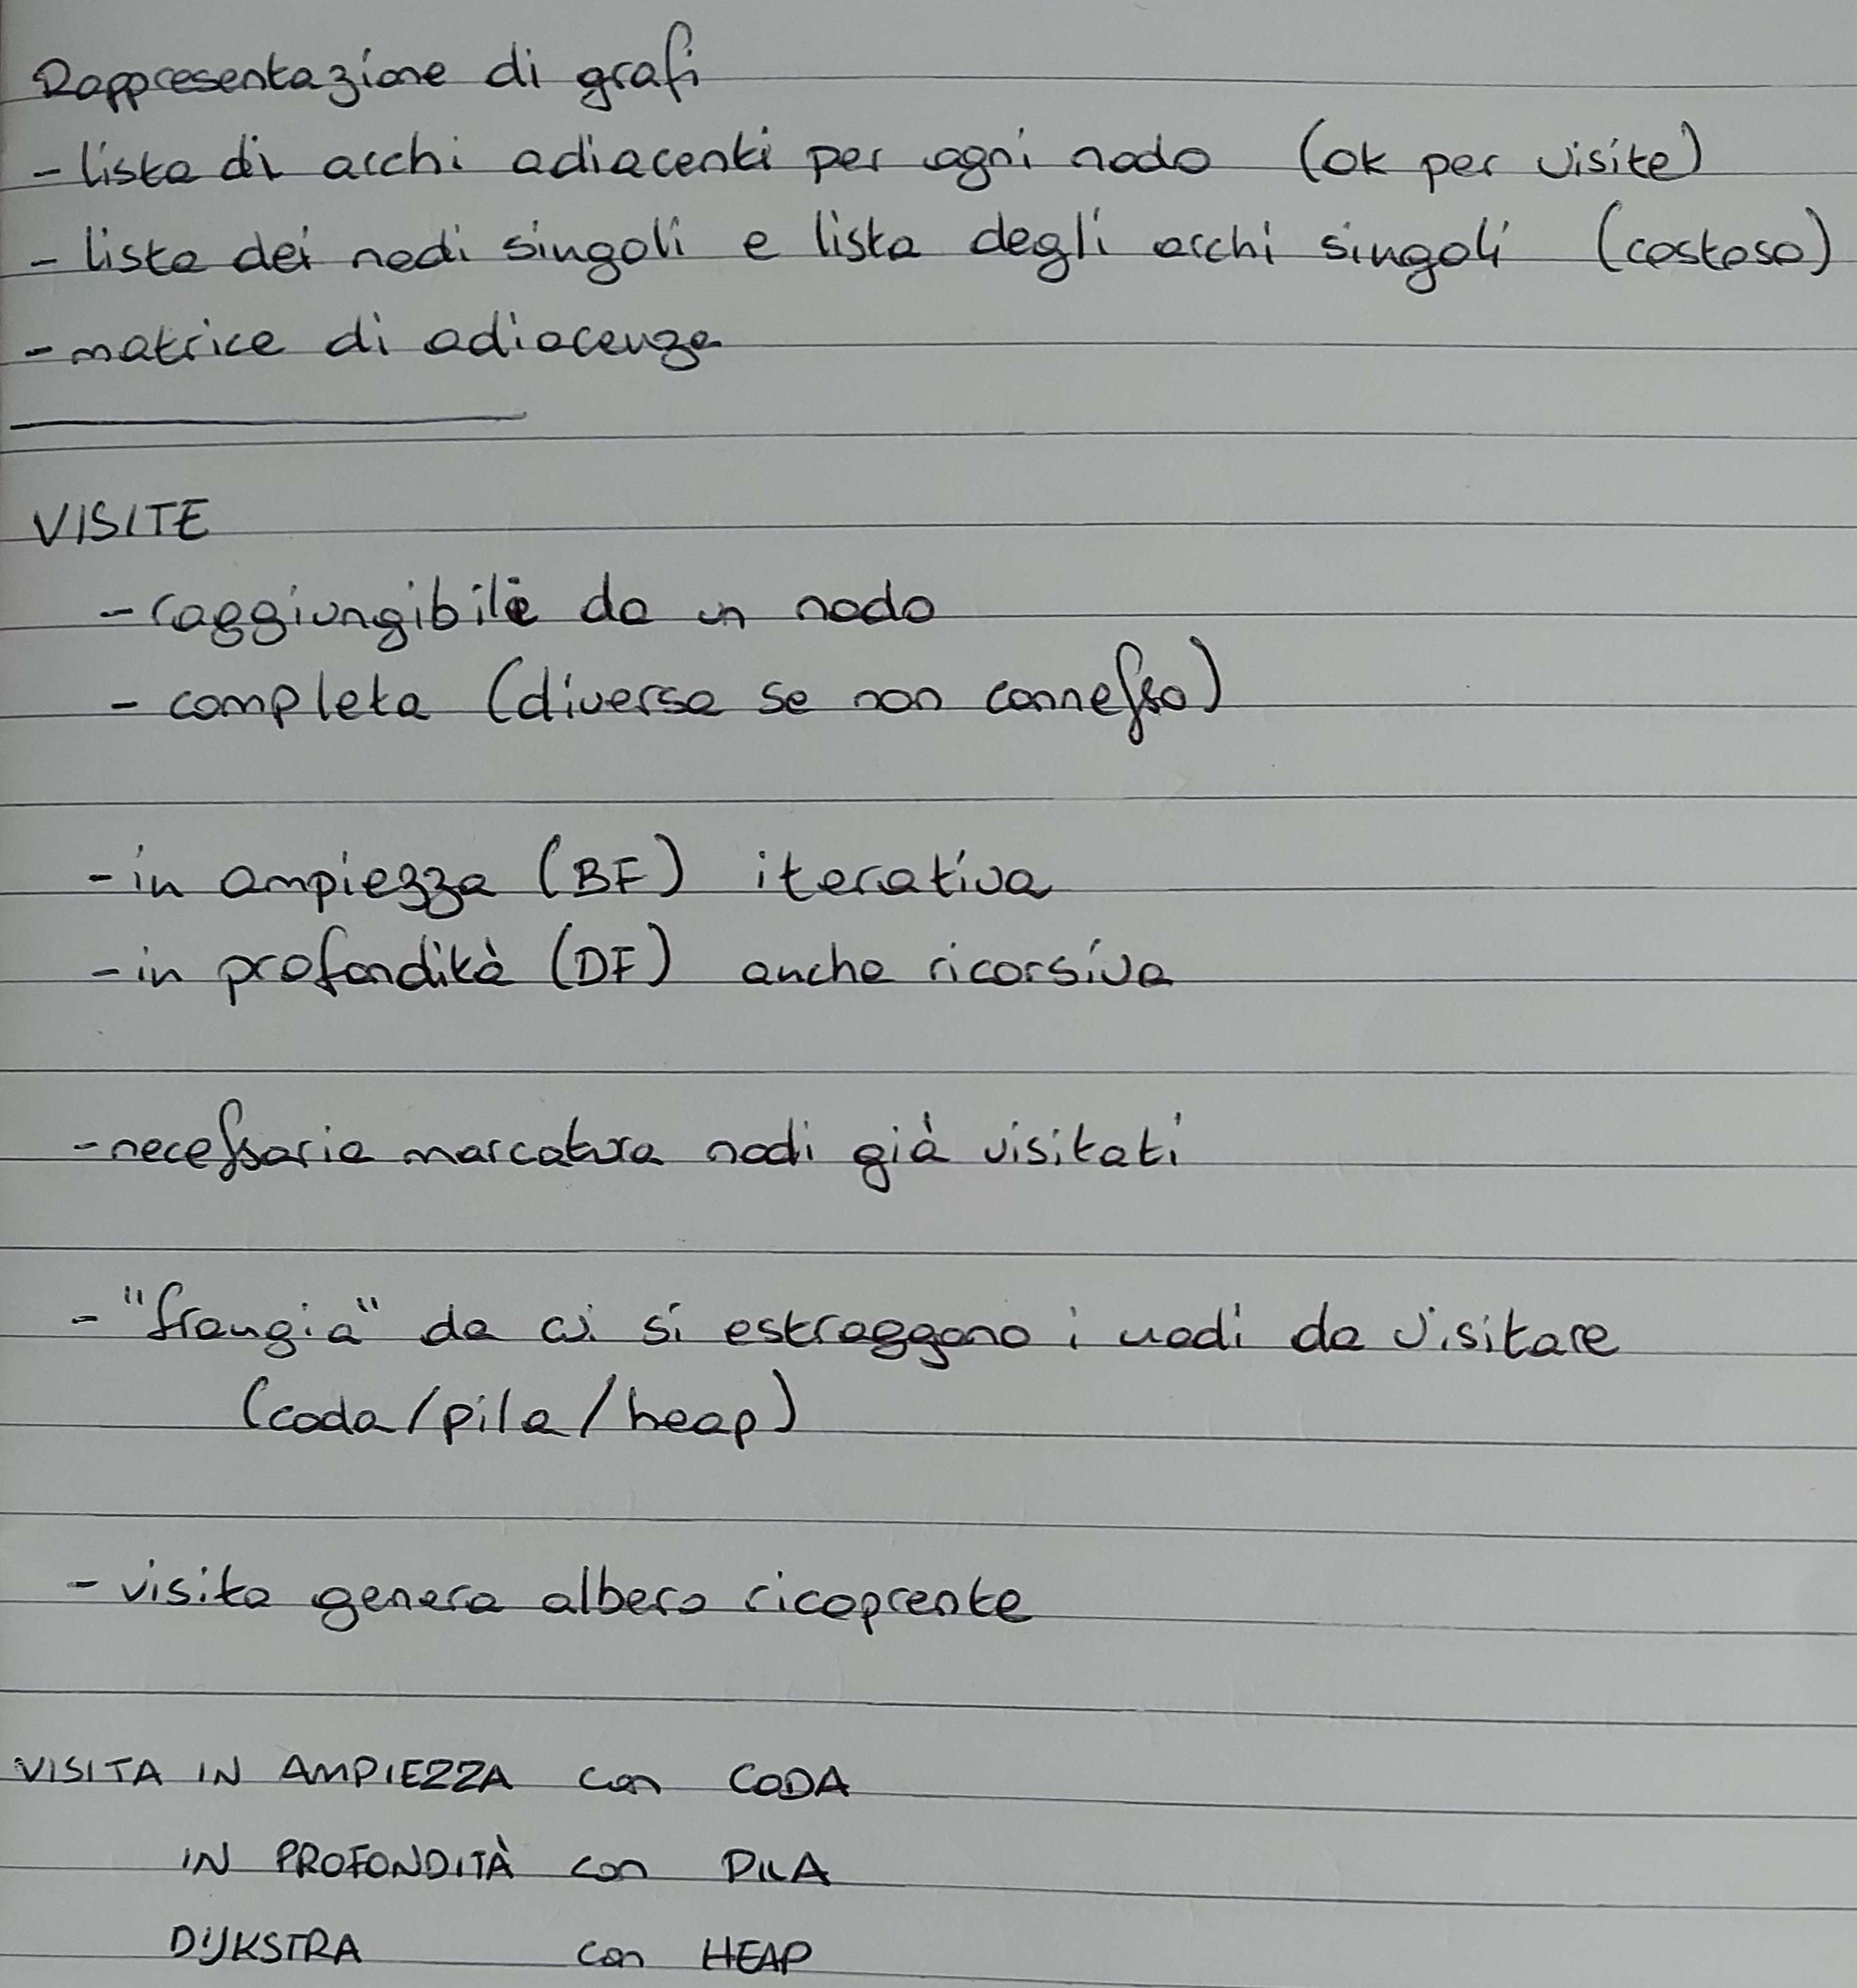 Rappresentazione di grafi
- lista di archi adiacenti per ogni nodo (ok per visite)
- lista dei nodi singoli e lista degli archi singoli (costoso)
- matrice di adiacenza
VISITE
- raggiungibile da un nodo
- completa (diversa se non connesso)
- in ampiezza (BF) iterativa
- in profondità (DF) anche ricorsiva
- necessaria marcatura nodi già visitati
- "frangia" da cui si estraggono i nodi da visitare
(coda/pila/heap)
- visita genera albero ricoprente
VISITA IN AMPIEZZA con CODA
IN PROFONDITÀ con PILA
DIJKSTRA con HEAP